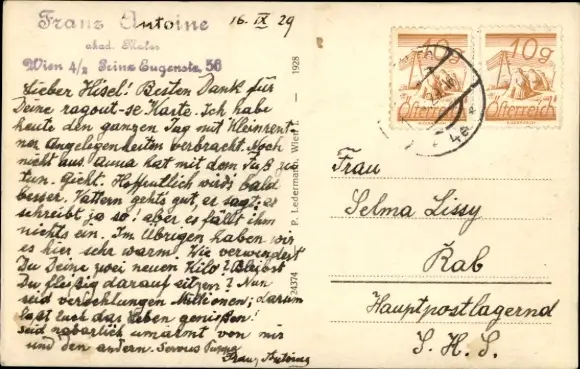 Franz Antoine
akad. Maler
Wien 4/2 Prinz Eugenstr. 56
16. IX 29
Lieber Hisel! Besten Dank für
Deine ragout-se Karte. Ich habe
heute den ganzen Tag mit Kleinrent-
ner Angelegenheiten verbracht. Noch
nicht aus. Anna hat mit dem Fuß zu
tun. Gicht. Hoffentlich wird's bald
besser. Vattern gehts gut, er sagt: er
schreibt, ja so! aber es fällt ihm
nichts ein. Im Übrigen haben wir
es hier sehr warm. Wie verwendest
Du Deine zwei neuen Kilo? Bleibst
Du fleißig darauf sitzen? Nun
seid
darum
laßt Euch das Leben genießen!
Seid umarmt von mir
und den andern. Servus
Franz Antoine
24374 P. Ledermann, Wien I. — 1928
10g 10g
Österreich Österreich
Frau
Selma Lissy
Rab
Hauptpostlagernd
S. H. S.